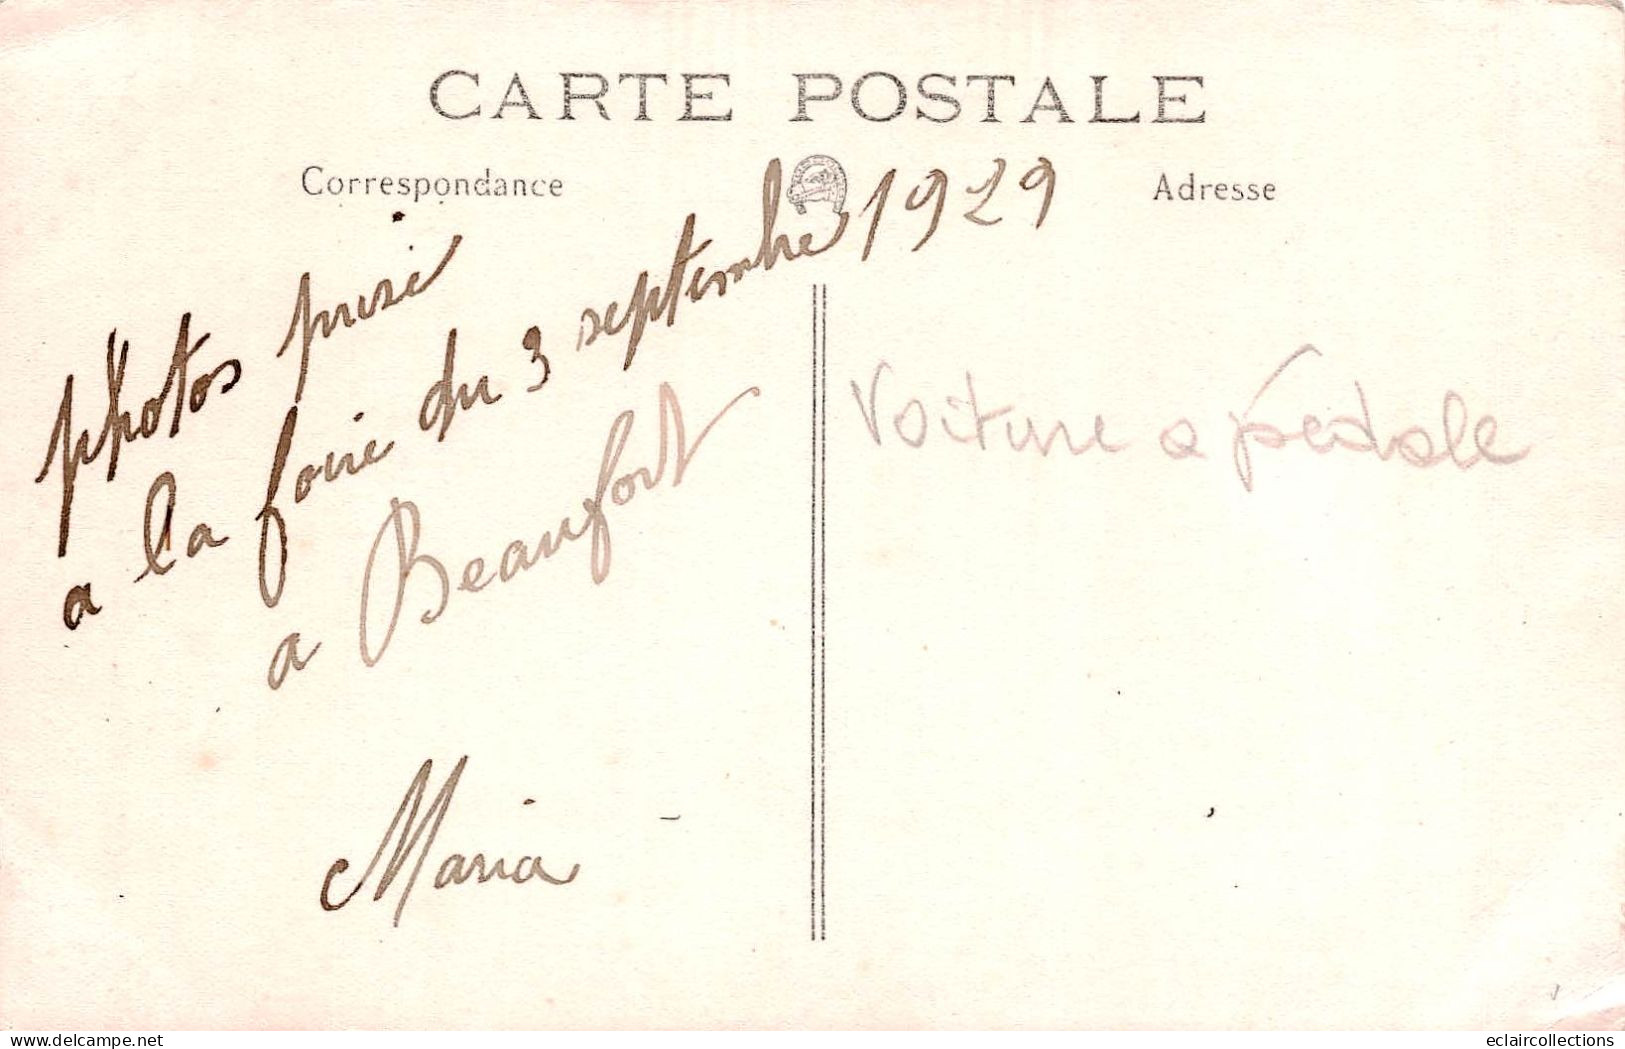 CARTE POSTALE
Correspondance
Adresse
photos prise
a la foire du 3 septembre 1929
a Beaufort
Maria
Voiture a pedale
eclaircollections